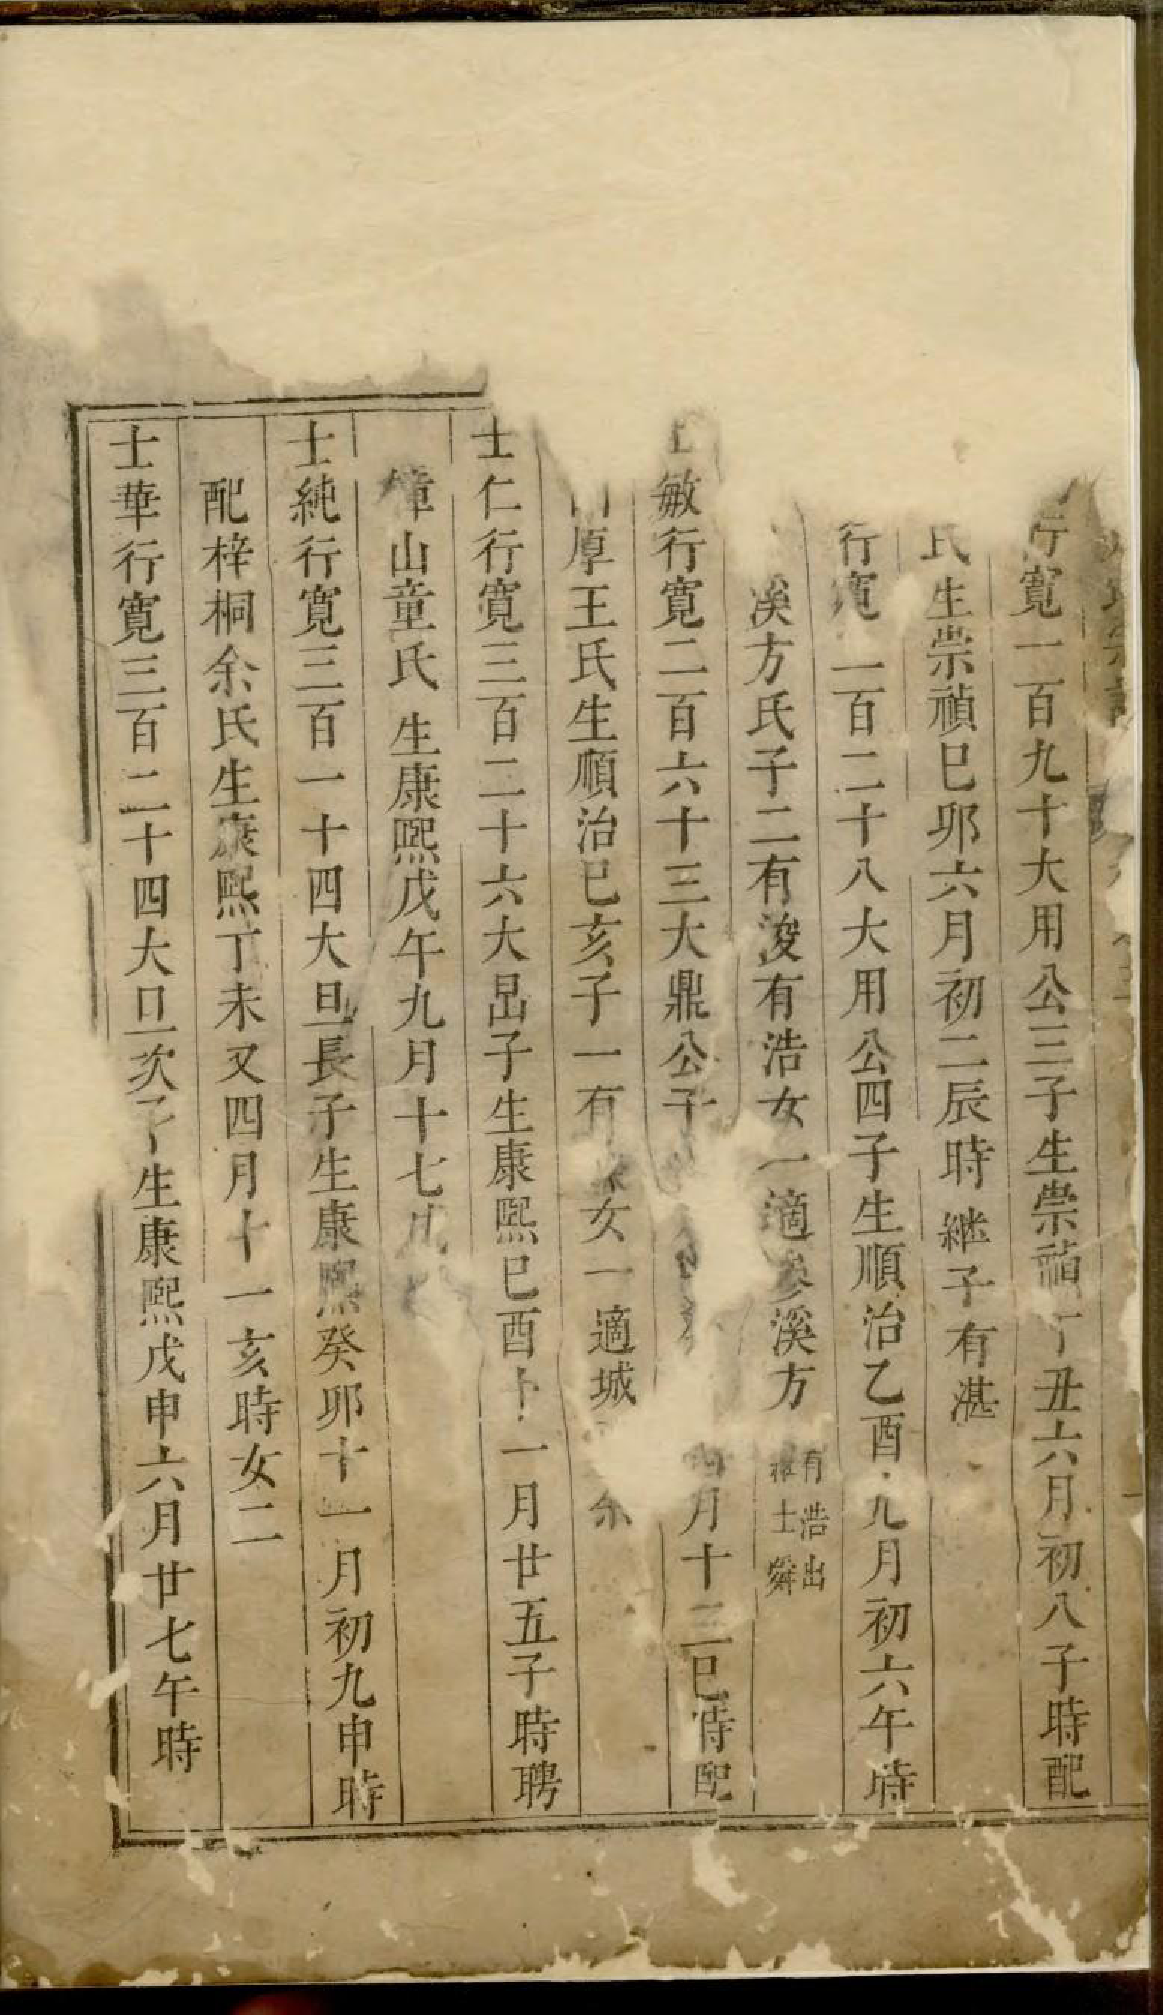 行寛一百九十大用公三子生崇禎丁丑六月初八子時配
氏生崇禎巳卯六月初二辰時継子有湛
行寛一百二十八大用公四子生順治乙酉九月初六午時
溪方氏子二有浚有浩女一適溪方
有浩出
士舜
敏行寛二百六十三大鼎公子
四月十三巳時配
厚王氏生順治巳亥子一有女一適城
士仁行寛三百二十六大昂子生康熙巳酉十一月廿五子時聘
樟山童氏生康熙戊午九月十七
士純行寛三百一十四大旦長子生康熙癸卯十一月初九申時
配梓桐余氏生康熙丁未又四月十一亥時女二
士華行寛三百二十四大旦次子生康熙戊申六月廿七午時